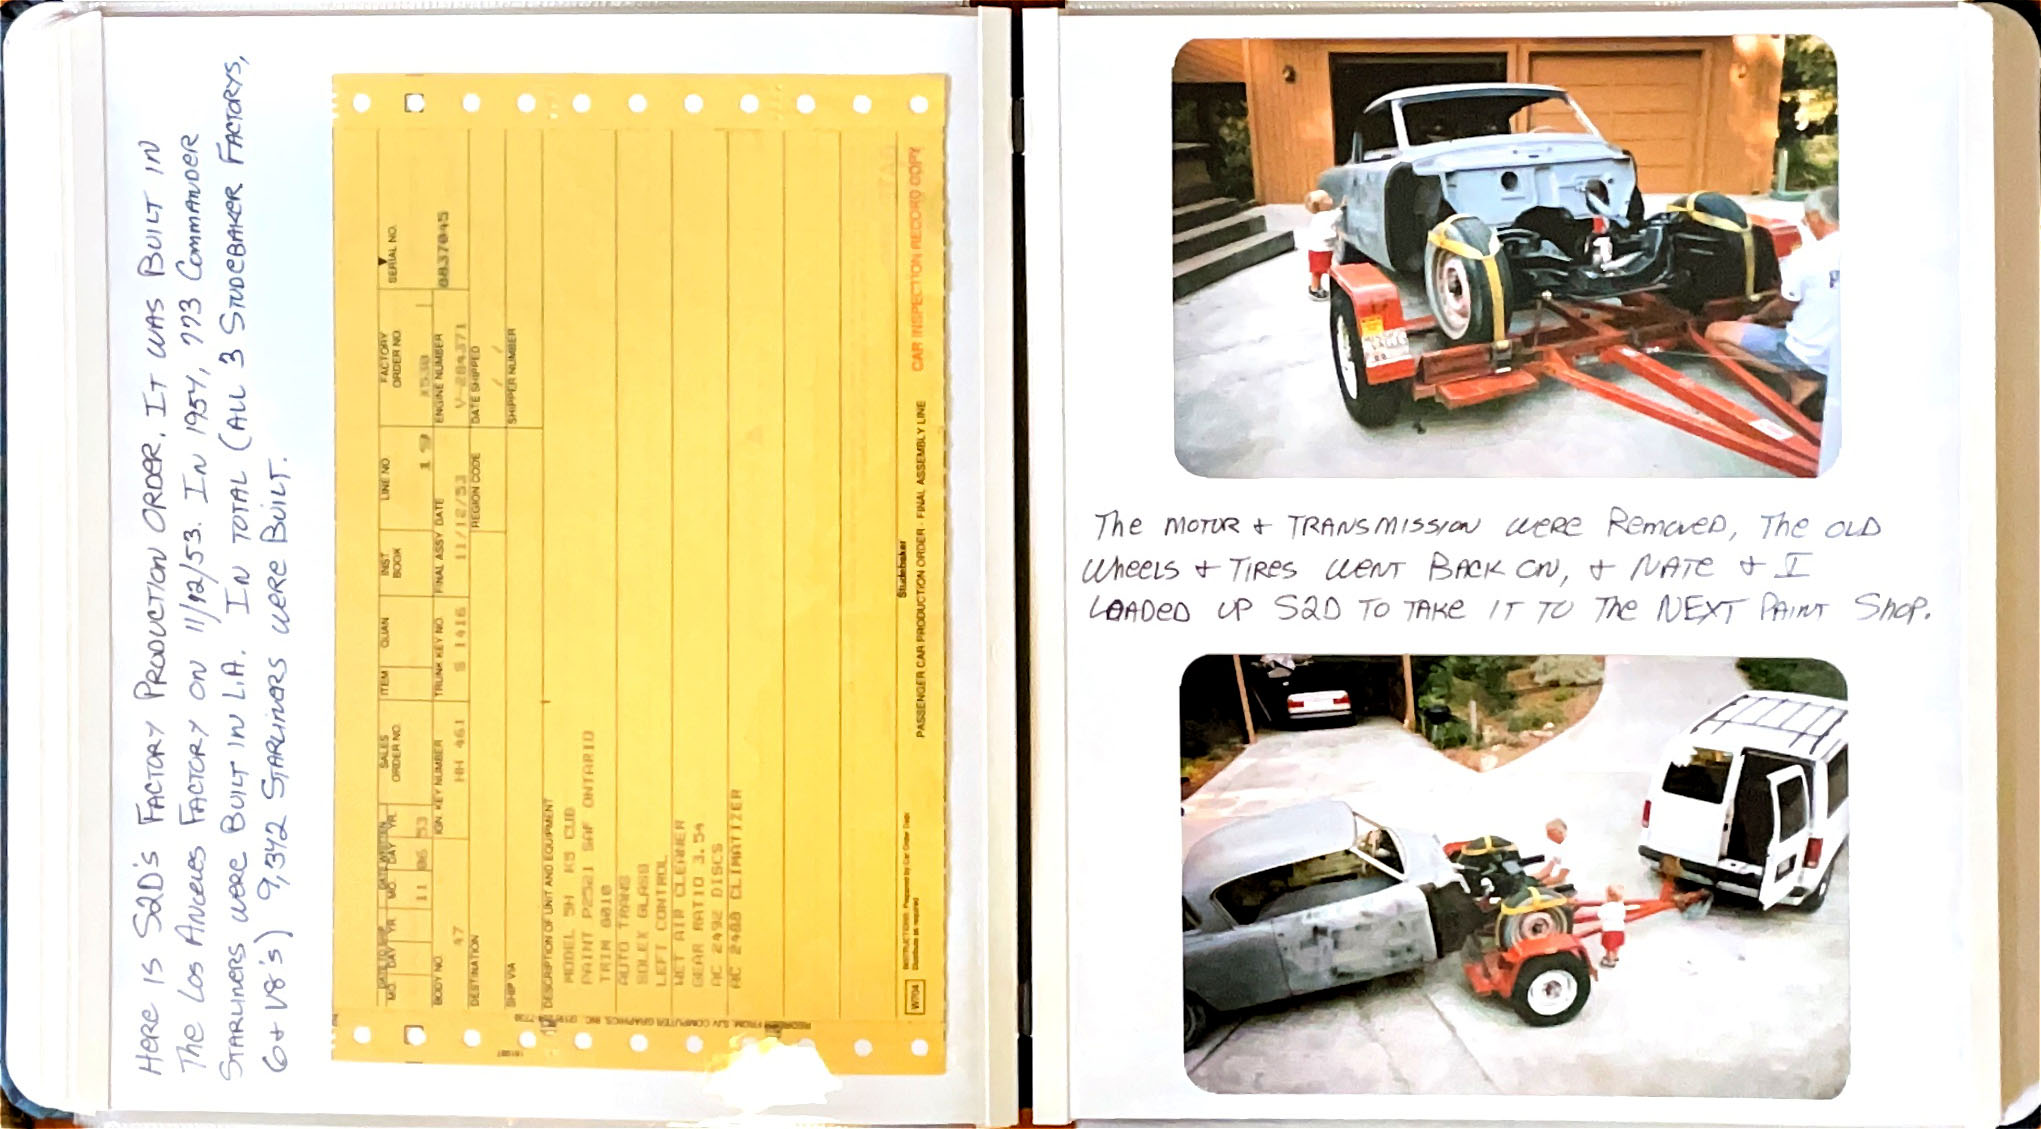 Here is S2D's Factory Production Order. It was Built in
The Los Angeles Factory on 11/12/53. In 1954, 773 Commander
Starliners were Built in L.A. In total (All 3 Studebaker Factorys,
6 + V8's) 9,342 Starliners were Built.
MO. DAY YR. MO. DAY YR. SALES ORDER NO. ITEM QUAN INST BOOK LINE NO. FACTORY ORDER NO. SERIAL NO.
11 06 53 19
BODY NO. IGN. KEY NUMBER TRUNK KEY NO. FINAL ASSY DATE ENGINE NUMBER
47 HH 461 S 1416 11/12/53 V-284371 8837045
DESTINATION REGION CODE DATE SHIPPED
SHIP VIA SHIPPER NUMBER
DESCRIPTION OF UNIT AND EQUIPMENT
MODEL 5H K5 CUD
PAINT P2521 SAF ONTARIO
TRIM 8010
AUTO TRANS
SOLEX GLASS
LEFT CONTROL
WET AIR CLEANER
GEAR RATIO 3.54
AC 2492 DISCS
AC 2488 CLIMATIZER
Studebaker
W704 INSTRUCTIONS: Prepared by Car Order Dept.
Distribute as required
PASSENGER CAR PRODUCTION ORDER - FINAL ASSEMBLY LINE CAR INSPECTION RECORD COPY
The motor + transmission were Removed, The old
wheels + Tires went Back on, + Nate + I
Loaded up S2D to take it to the next Paint Shop.